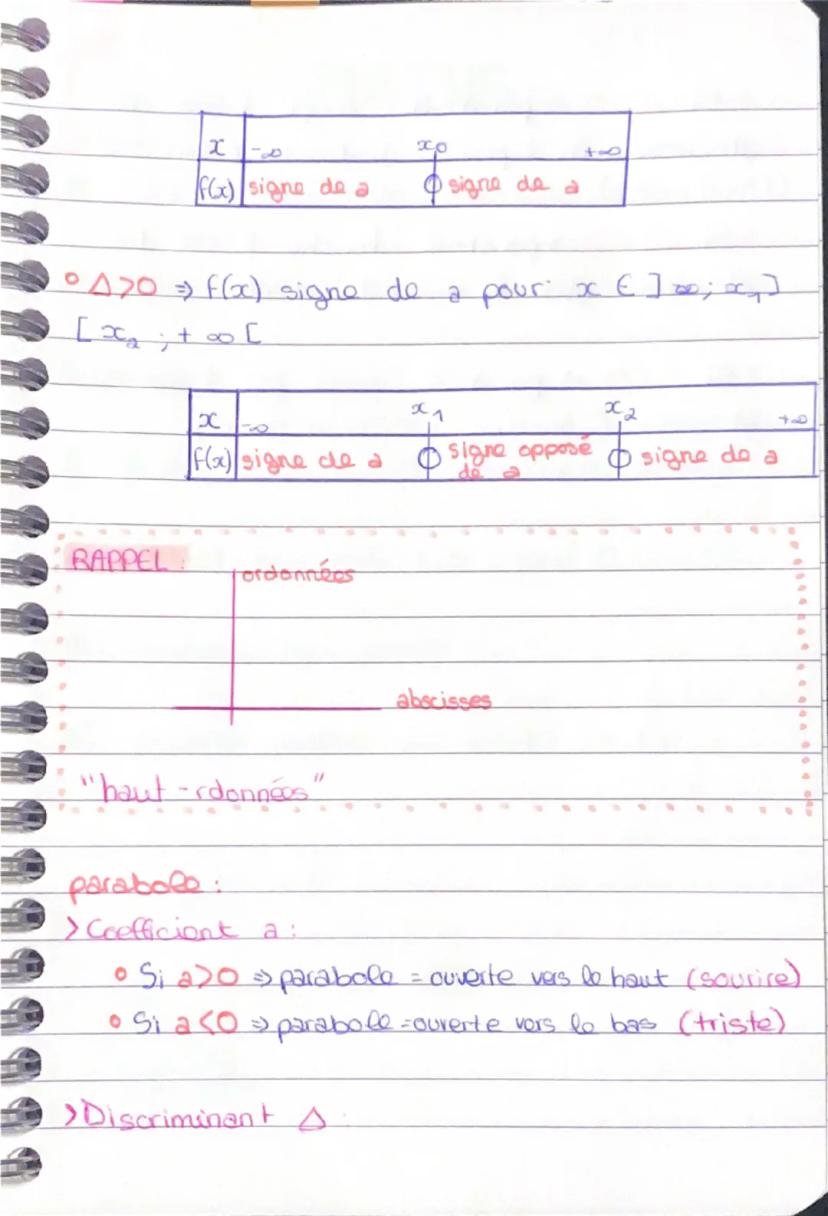 x -∞ x0 +∞
f(x) signe de a 0 signe de a
Δ>0 ⇒ f(x) signe de a pour x ∈ ]∞; x1]
[x2 ; +∞[
x -∞ x1 x2 +∞
f(x) signe de a 0 signe opposé de a 0 signe de a
RAPPEL :
ordonnées
abscisses
"haut-rdonnées"
parabole :
> Coefficient a :
Si a>0 ⇒ parabole = ouverte vers le haut (sourire)
Si a<0 ⇒ parabole = ouverte vers le bas (triste)
> Discriminant Δ :